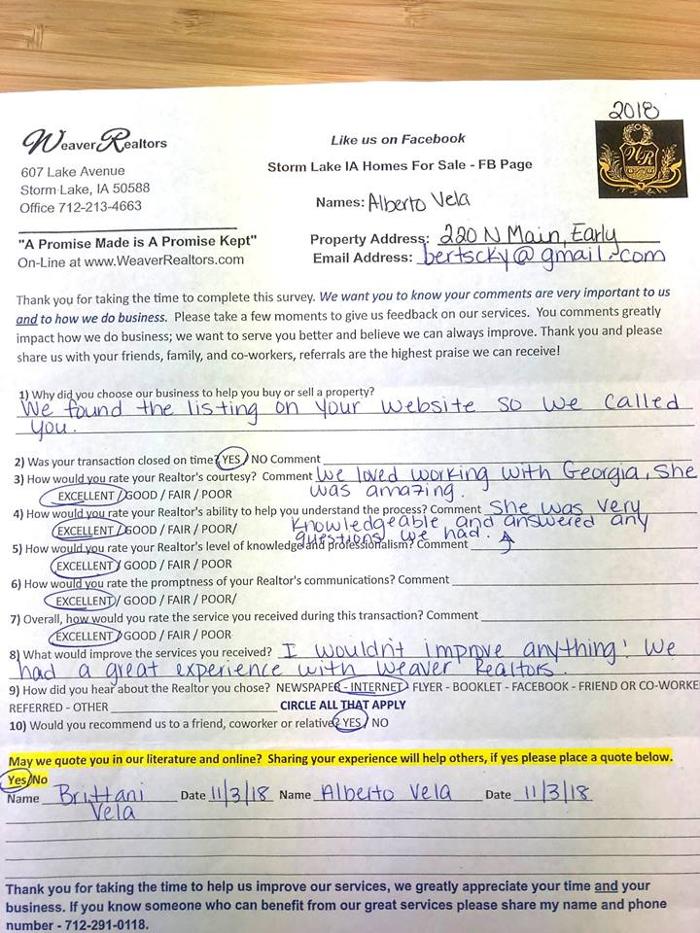 2018
WeaverRealtors
Like us on Facebook
607 Lake Avenue
Storm Lake IA Homes For Sale - FB Page
Storm Lake, IA 50588
Office 712-213-4663
Names: Alberto Vela
"A Promise Made is A Promise Kept"
Property Address: 220 N Main, Early
On-Line at www.WeaverRealtors.com
Email Address: bertscky@gmail.com
Thank you for taking the time to complete this survey. We want you to know your comments are very important to us
and to how we do business. Please take a few moments to give us feedback on our services. You comments greatly
impact how we do business; we want to serve you better and believe we can always improve. Thank you and please
share us with your friends, family, and co-workers, referrals are the highest praise we can receive!
1) Why did you choose our business to help you buy or sell a property?
We found the listing on your website so we called
you.
2) Was your transaction closed on time? YES / NO Comment
3) How would you rate your Realtor's courtesy? Comment We loved working with Georgia, She
EXCELLENT / GOOD / FAIR / POOR was amazing.
4) How would you rate your Realtor's ability to help you understand the process? Comment She was very
EXCELLENT / GOOD / FAIR / POOR/ knowledgeable and answered any
questions we had.
5) How would you rate your Realtor's level of knowledge and professionalism? Comment
EXCELLENT / GOOD / FAIR / POOR
6) How would you rate the promptness of your Realtor's communications? Comment
EXCELLENT / GOOD / FAIR / POOR/
7) Overall, how would you rate the service you received during this transaction? Comment
EXCELLENT / GOOD / FAIR / POOR
8) What would improve the services you received? I wouldn't improve anything! We
had a great experience with Weaver Realtors.
9) How did you hear about the Realtor you chose? NEWSPAPER - INTERNET - FLYER - BOOKLET - FACEBOOK - FRIEND OR CO-WORKE
REFERRED - OTHER CIRCLE ALL THAT APPLY
10) Would you recommend us to a friend, coworker or relative? YES / NO
May we quote you in our literature and online? Sharing your experience will help others, if yes please place a quote below.
Yes/No
Name Brittani Date 11/3/18 Name Alberto Vela Date 11/3/18
Vela
Thank you for taking the time to help us improve our services, we greatly appreciate your time and your
business. If you know someone who can benefit from our great services please share my name and phone
number - 712-291-0118.